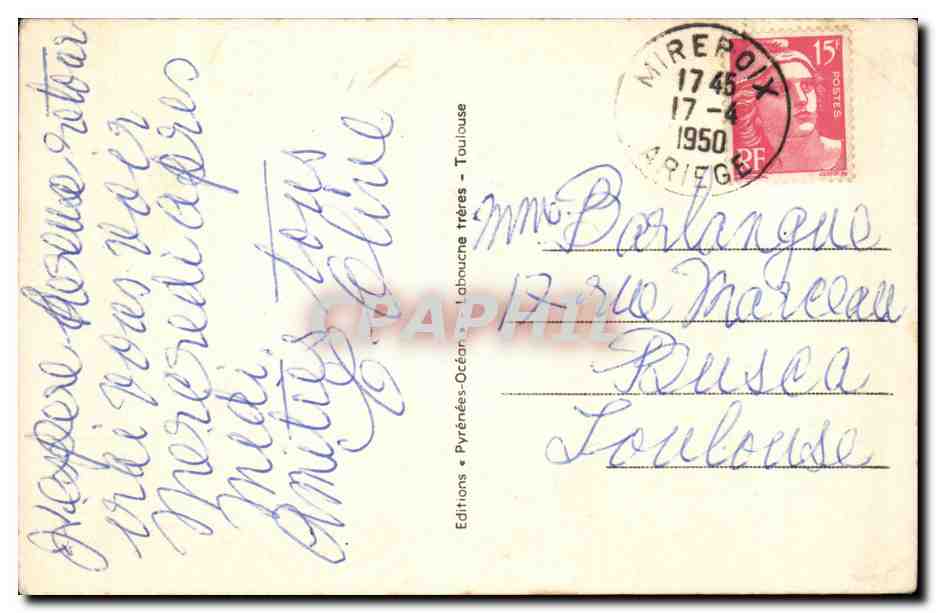 J'espère bonne retour
irai vous voir
mercredi apres
midi
Amitiés tous
Editions « Pyrénées-Océan » - Labouche frères - Toulouse
MIREPOIX
17 45
17 -4
1950
ARIEGE
15F
POSTES
RF
Mme Barlangue
17 rue Marceau
Busca
Toulouse
CPAPHIL